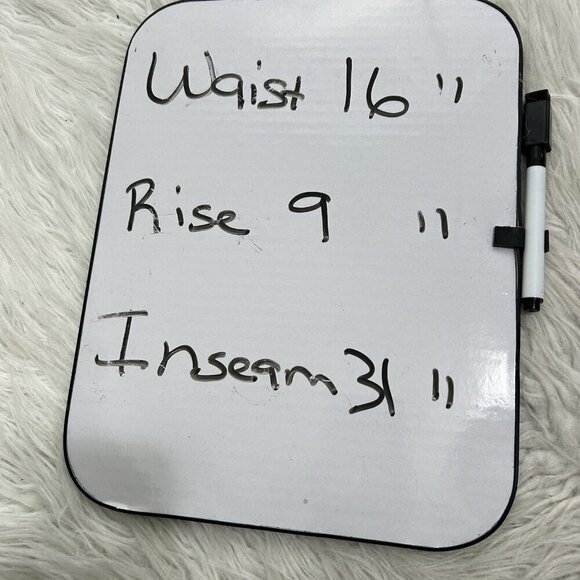 Waist 16 "
Rise 9 "
Inseam 31 "